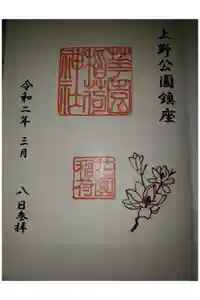 上野公園鎮座
花園
稲荷
神社
花園
稲荷
令和二年 三月 八日参拝